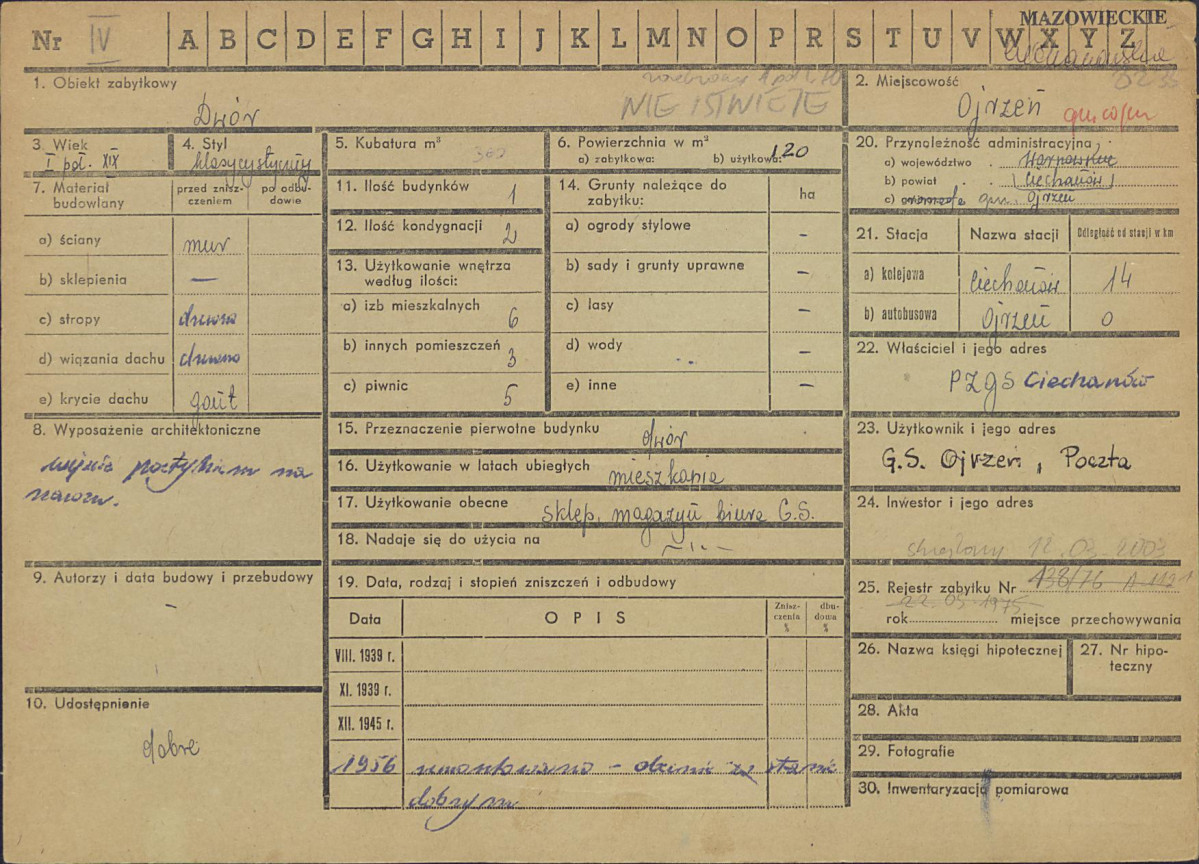 MAZOWIECKIE
Nr IV A B C D E F G H I J K L M N O P R S T U V W X Y Z
1. Obiekt zabytkowy
Dwór
NIE ISTNIEJE
2. Miejscowość
Ojrzeń
3. Wiek
I poł. XIX
4. Styl
klasycystyczny
5. Kubatura m³
302
6. Powierzchnia w m²
a) zabytkowa: b) użytkowa: 120
7. Materiał budowlany
przed zniszczeniem
po odbudowie
a) ściany mur
b) sklepienia —
c) stropy drewno
d) wiązania dachu drewno
e) krycie dachu gont
8. Wyposażenie architektoniczne
wejście
na
9. Autorzy i data budowy i przebudowy
-
10. Udostępnienie
dobre
11. Ilość budynków 1
12. Ilość kondygnacji 2
13. Użytkowanie wnętrza według ilości:
a) izb mieszkalnych 6
b) innych pomieszczeń 3
c) piwnic 5
14. Grunty należące do zabytku:
ha
a) ogrody stylowe -
b) sady i grunty uprawne -
c) lasy -
d) wody -
e) inne -
15. Przeznaczenie pierwotne budynku dwór
16. Użytkowanie w latach ubiegłych mieszkania
17. Użytkowanie obecne sklep, magazyn, biura G.S.
18. Nadaje się do użycia na
19. Data, rodzaj i stopień zniszczeń i odbudowy
Data
OPIS
Zniszczenia %
dbudowa %
VIII. 1939 r.
XI. 1939 r.
XII. 1945 r.
1956 remontowano - obecnie w stanie
dobrym
20. Przynoleżność administracyjna
a) województwo Warszawskie
b) powiat (Ciechanów)
c) gromada gm. Ojrzeń
21. Stacja
Nazwa stacji
Odległość od stacji w km
a) kolejowa Ciechanów 14
b) autobusowa Ojrzeń 0
22. Właściciel i jego adres
PZGS Ciechanów
23. Użytkownik i jego adres
G.S. Ojrzeń, Poczta
24. Inwestor i jego adres
skreślony 12.03.2003
25. Rejestr zabytku Nr 138/76 A-1121
22.03.1975
rok miejsce przechowywania
26. Nazwa księgi hipotecznej
27. Nr hipoteczny
28. Akta
29. Fotografie
30. Inwentaryzacja pomiarowa